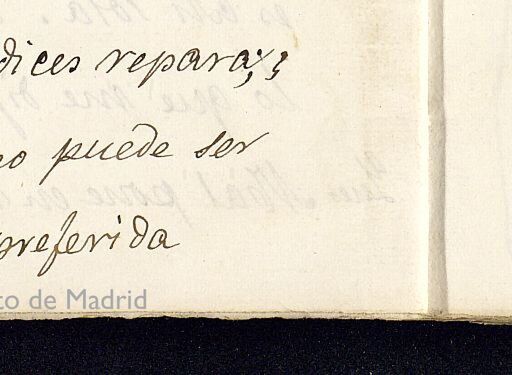 dices repara;
no puede ser
preferida
to de Madrid